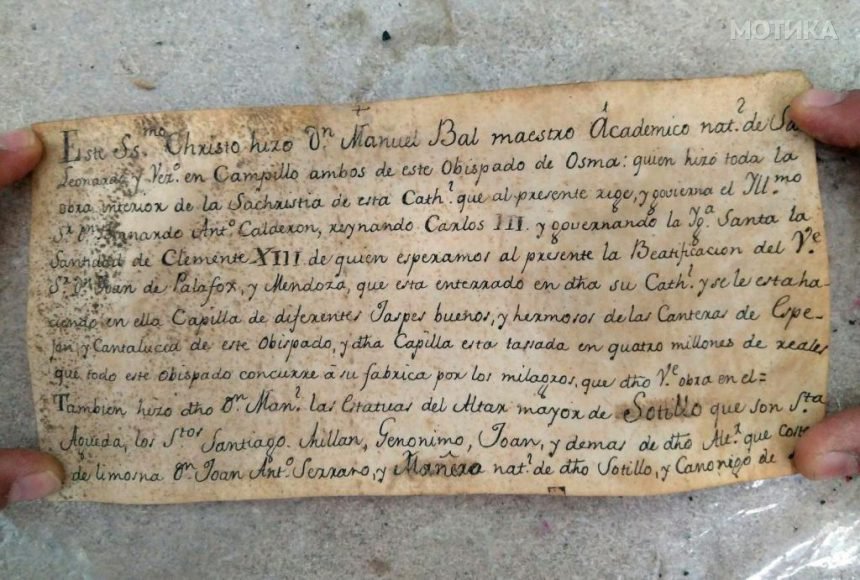 МОТИКА
Este Ss.mo Christo hizo Dn. Manuel Bal maestro Academico nat.l de Sa
Leonardo y Vez.o en Campillo ambos de este Obispado de Osma: quien hizo toda la
obra interior de la Sachristia de esta Cath.l que al presente rige, y governa el Yll.mo
Sr. Dn. Bernardo Ant.o Calderon, reynando Carlos III. y governando la Yg.a Santa la
Santidad de Clemente XIII. de quien esperamos al presente la Beatificacion del V.e
Sr. Dn. Joan de Palafox, y Mendoza, que esta enterrado en dha su Cath.l y se le esta ha-
ciendo en ella Capilla de diferentes Jaspes buenos, y hermosos de las Canteras de Espe-
jon, y Cantalucia de este Obispado, y dha Capilla esta tassada en quatro millones de reales
que todo este Obispado concurre â su fabrica por los milagros, que dho V.e obra en el=
Tambien hizo dho Dn. Man.l las Estatuas del Altar mayor de Sotillo que son S.ta
Agueda, los S.tos Santiago. Millan, Geronimo, Joan, y demas de dho Alt.r que costo
de limosna Dn. Joan Ant.o Serrano, y nat.l de dho Sotillo, y Canonigo de